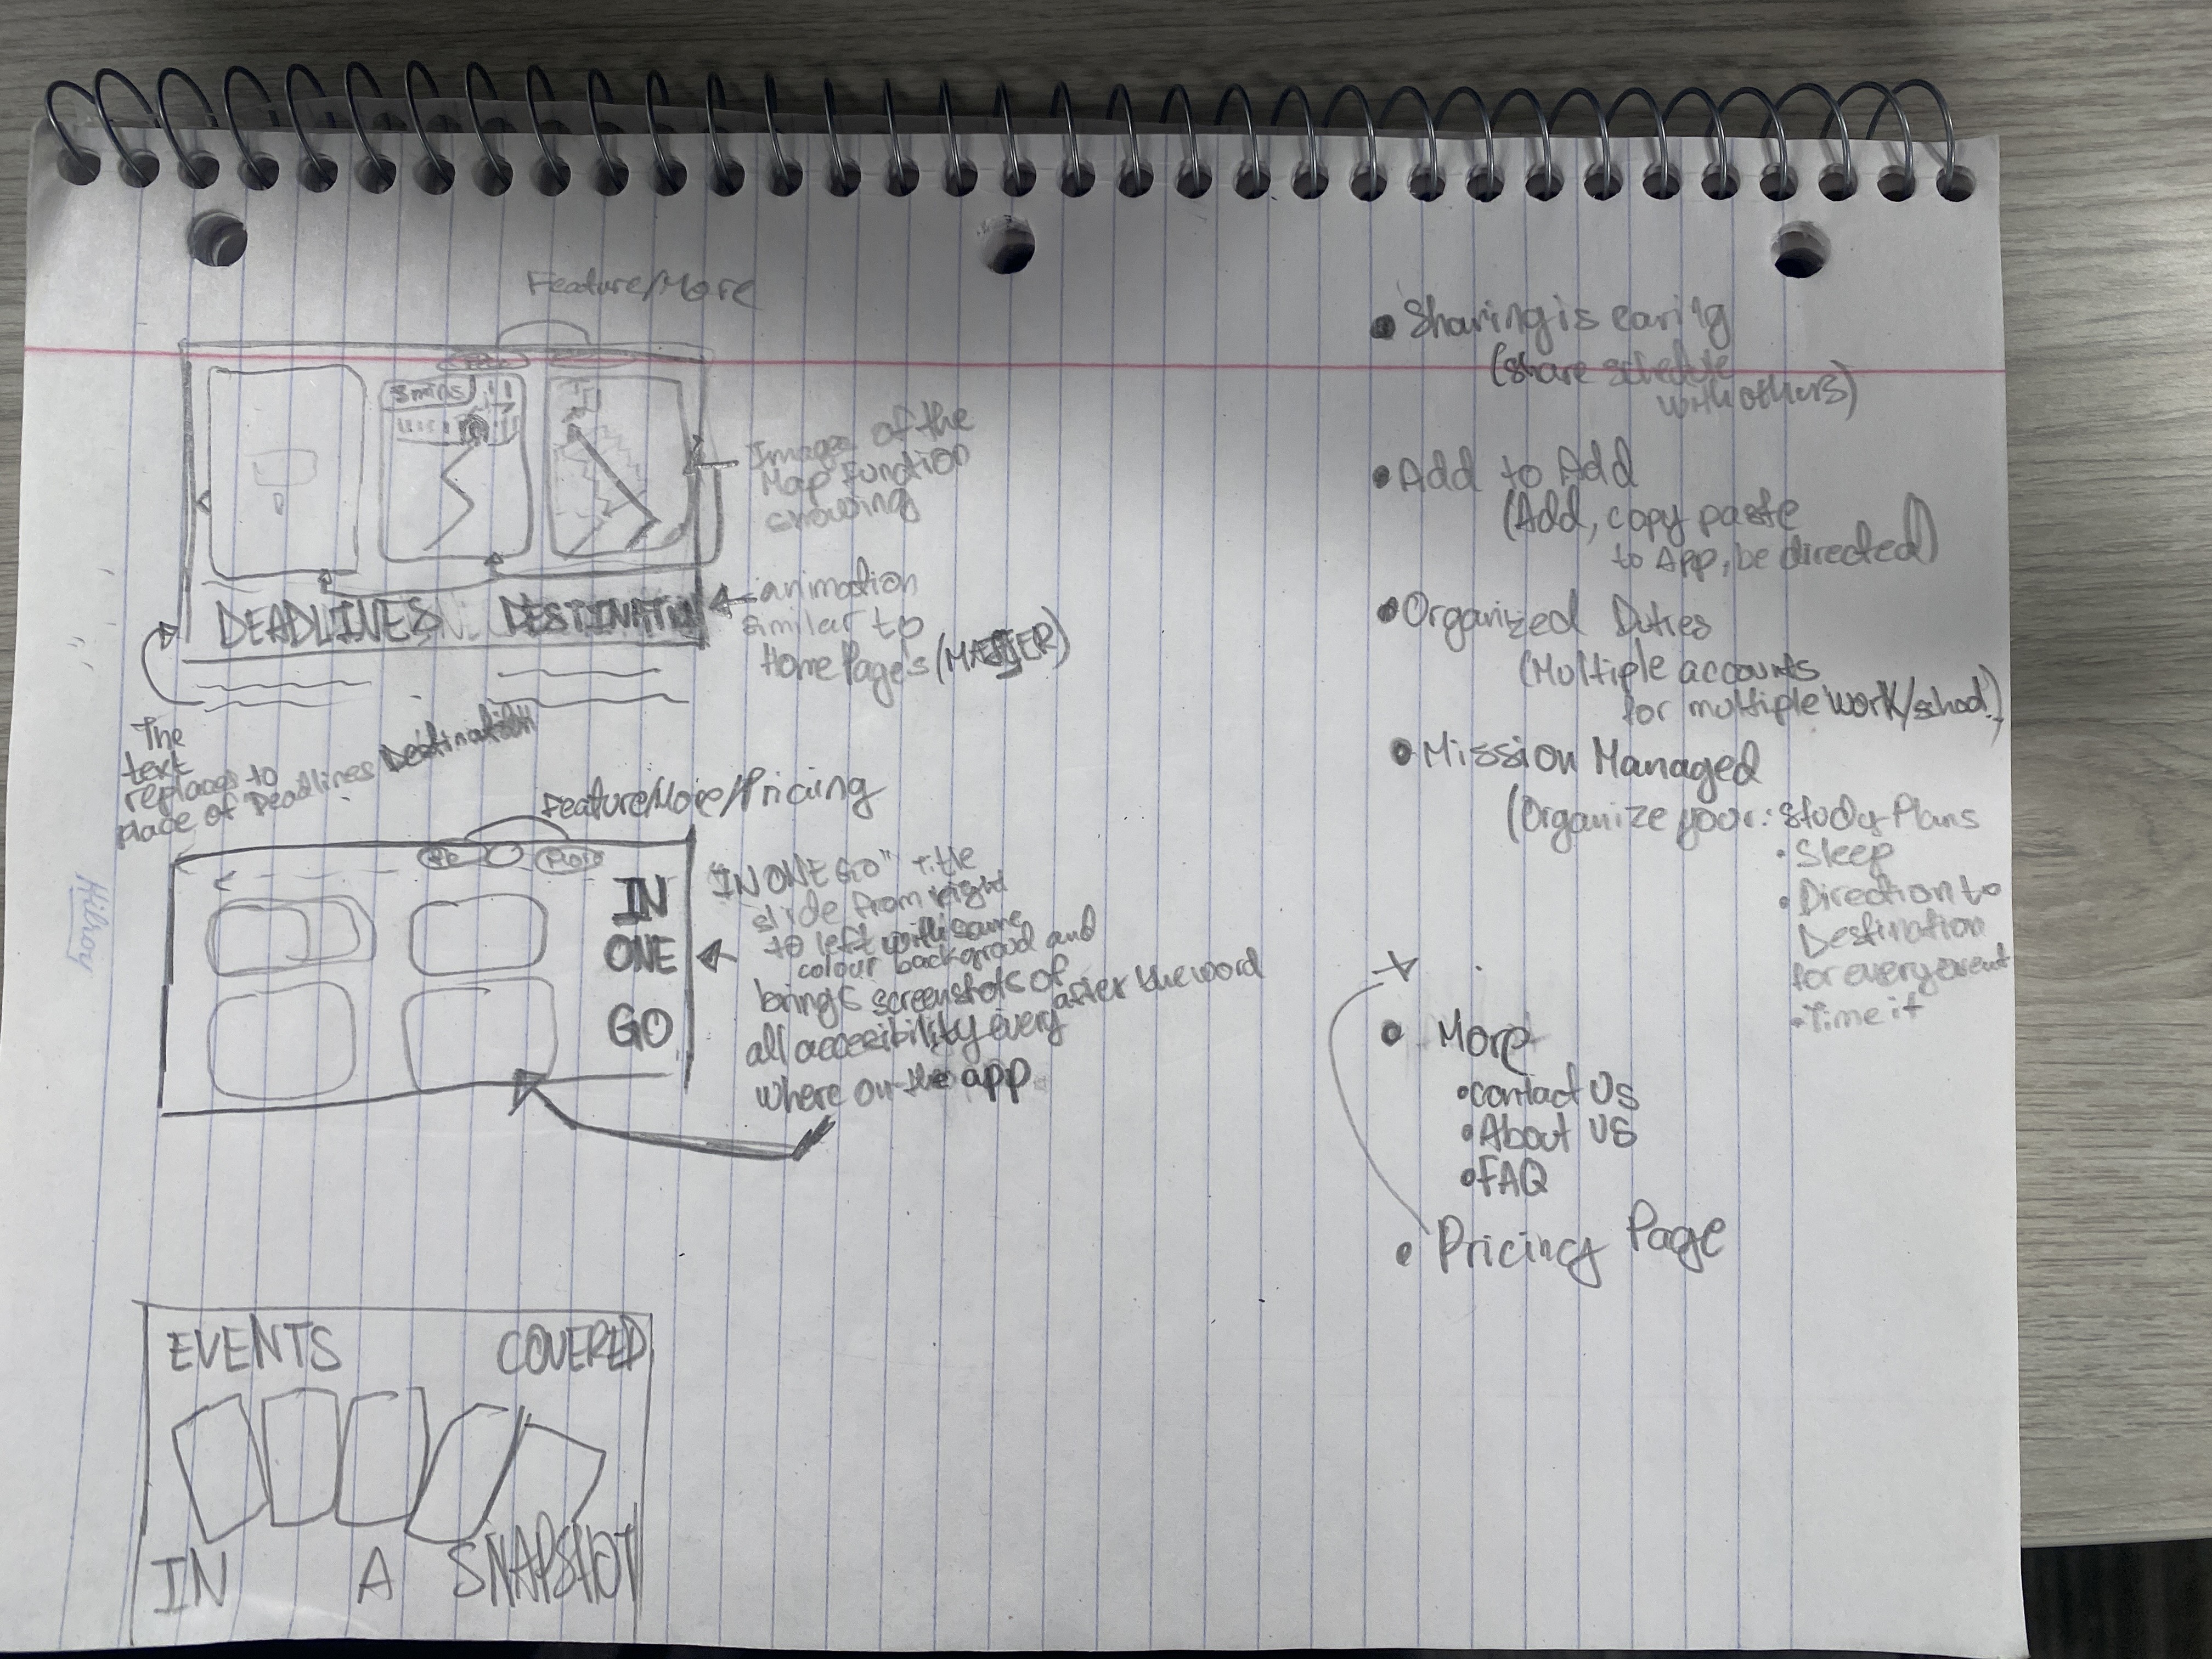 Feature/More
3 mins
Image of the
Map Function
showing
DEADLINES DESTINATION
animation
similar to
Home Page's (MASTER)
The
text
replaces to
place of Deadlines Destination
Feature/More/Pricing
More
IN
ONE
GO
"IN ONE GO" Title
slide from right
to left with same
colour background and
brings screenshots of after the word
all accesibility every
where on the app
Hilroy
EVENTS COVERED
IN A SNAPSHOT
• Sharing is caring
(share schedule
with others)
• Add to Add
(Add, copy paste
to App, be directed)
• Organized Duties
(Multiple accounts
for multiple work/school)
• Mission Managed
(Organize your: Study Plans
• Sleep
• Direction to
Destination
for every event
• Time it
• More
• Contact Us
• About US
• FAQ
• Pricing Page